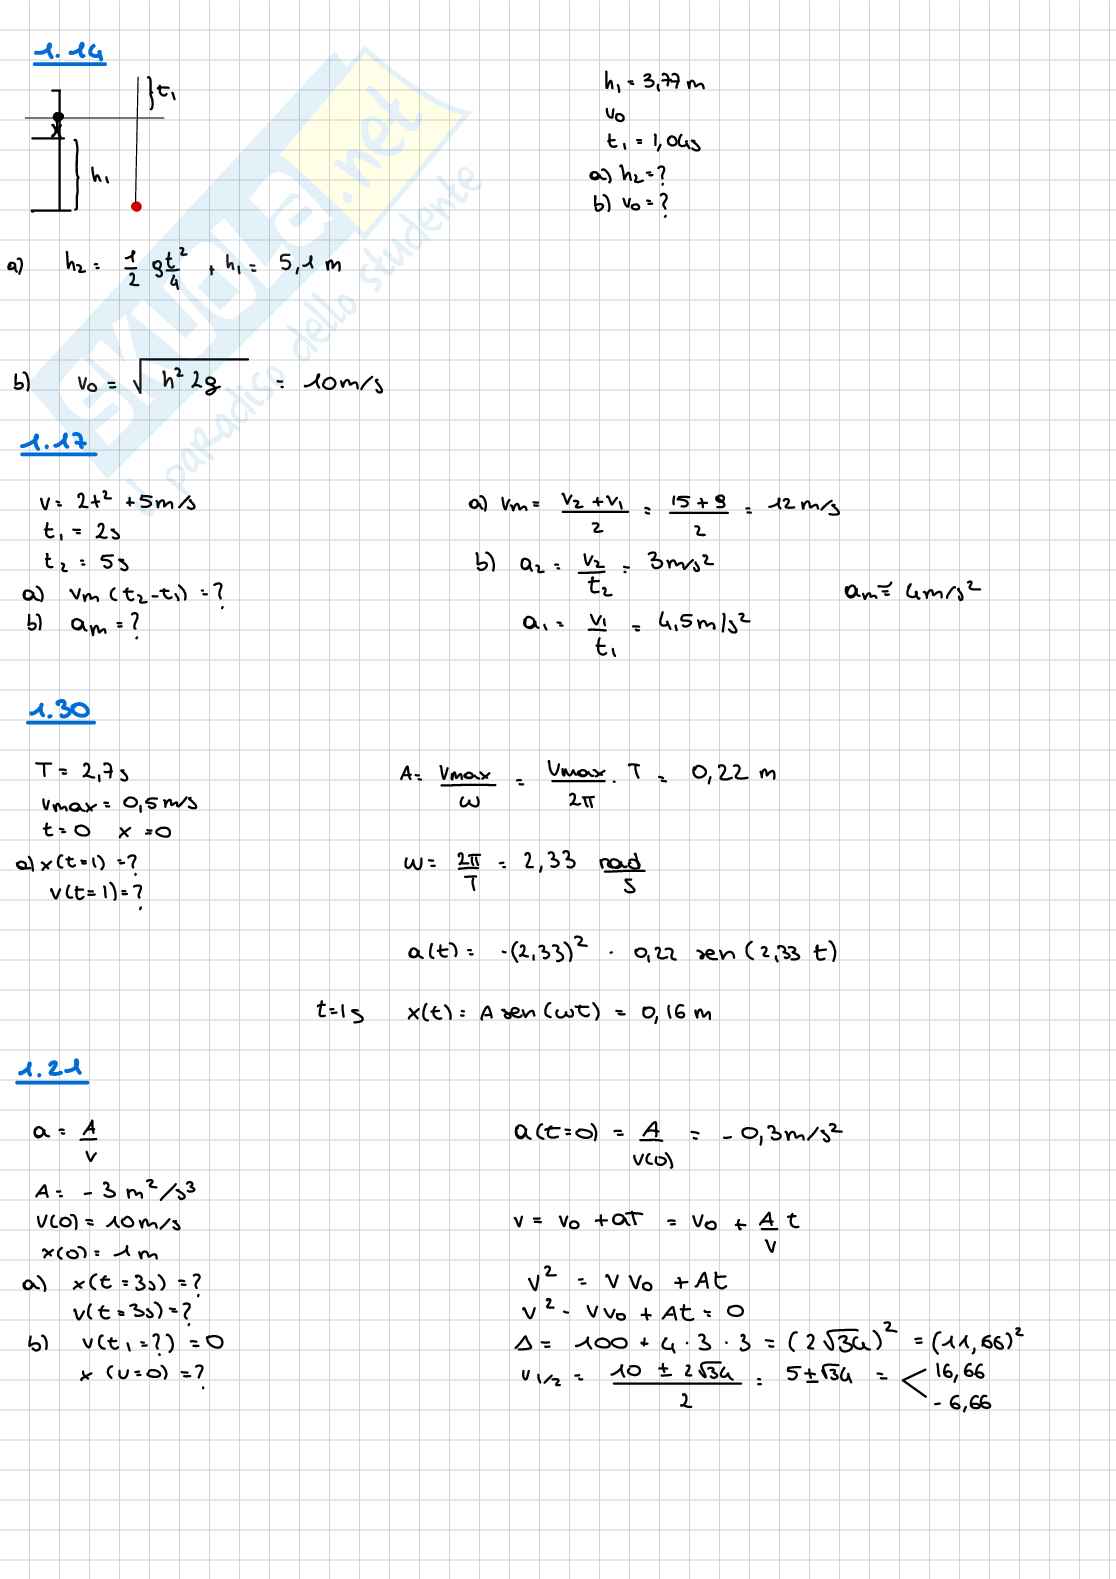 1.14
t₁
h₁
h₁ = 3,77 m
v₀
t₁ = 1,04s
a) h₂ = ?
b) v₀ = ?
a) h₂ = 1/2 g t²/4 + h₁ = 5,1 m
b) v₀ = √(h² 2g) = 10 m/s
SKUOLA.net
il paradiso dello studente
1.17
v = 2t² + 5 m/s
t₁ = 2s
t₂ = 5s
a) vm (t₂-t₁) = ?
b) am = ?
a) vm = (v₂ + v₁)/2 = (15 + 9)/2 = 12 m/s
b) a₂ = v₂/t₂ = 3 m/s²
am ≅ 4 m/s²
a₁ = v₁/t₁ = 4,5 m/s²
1.30
T = 2,7 s
vmax = 0,5 m/s
t = 0 x = 0
a) x(t=1) = ?
v(t=1) = ?
A = vmax/ω = vmax/2π · T = 0,22 m
ω = 2π/T = 2,33 rad/s
a(t) = -(2,33)² · 0,22 sen (2,33 t)
t=1s x(t) = A sen(ωt) = 0,16 m
1.21
a = A/v
A = - 3 m²/s³
v(0) = 10 m/s
x(0) = 1 m
a) x(t = 3s) = ?
v(t = 3s) = ?
b) v(t₁ = ?) = 0
x (v=0) = ?
a(t=0) = A/v(0) = - 0,3 m/s²
v = v₀ + aT = v₀ + A/v t
v² = v v₀ + At
v² - v v₀ + At = 0
Δ = 100 + 4 · 3 · 3 = (2√34)² = (11,66)²
v1/2 = (10 ± 2√34)/2 = 5 ± √34 = < 16,66
- 6,66